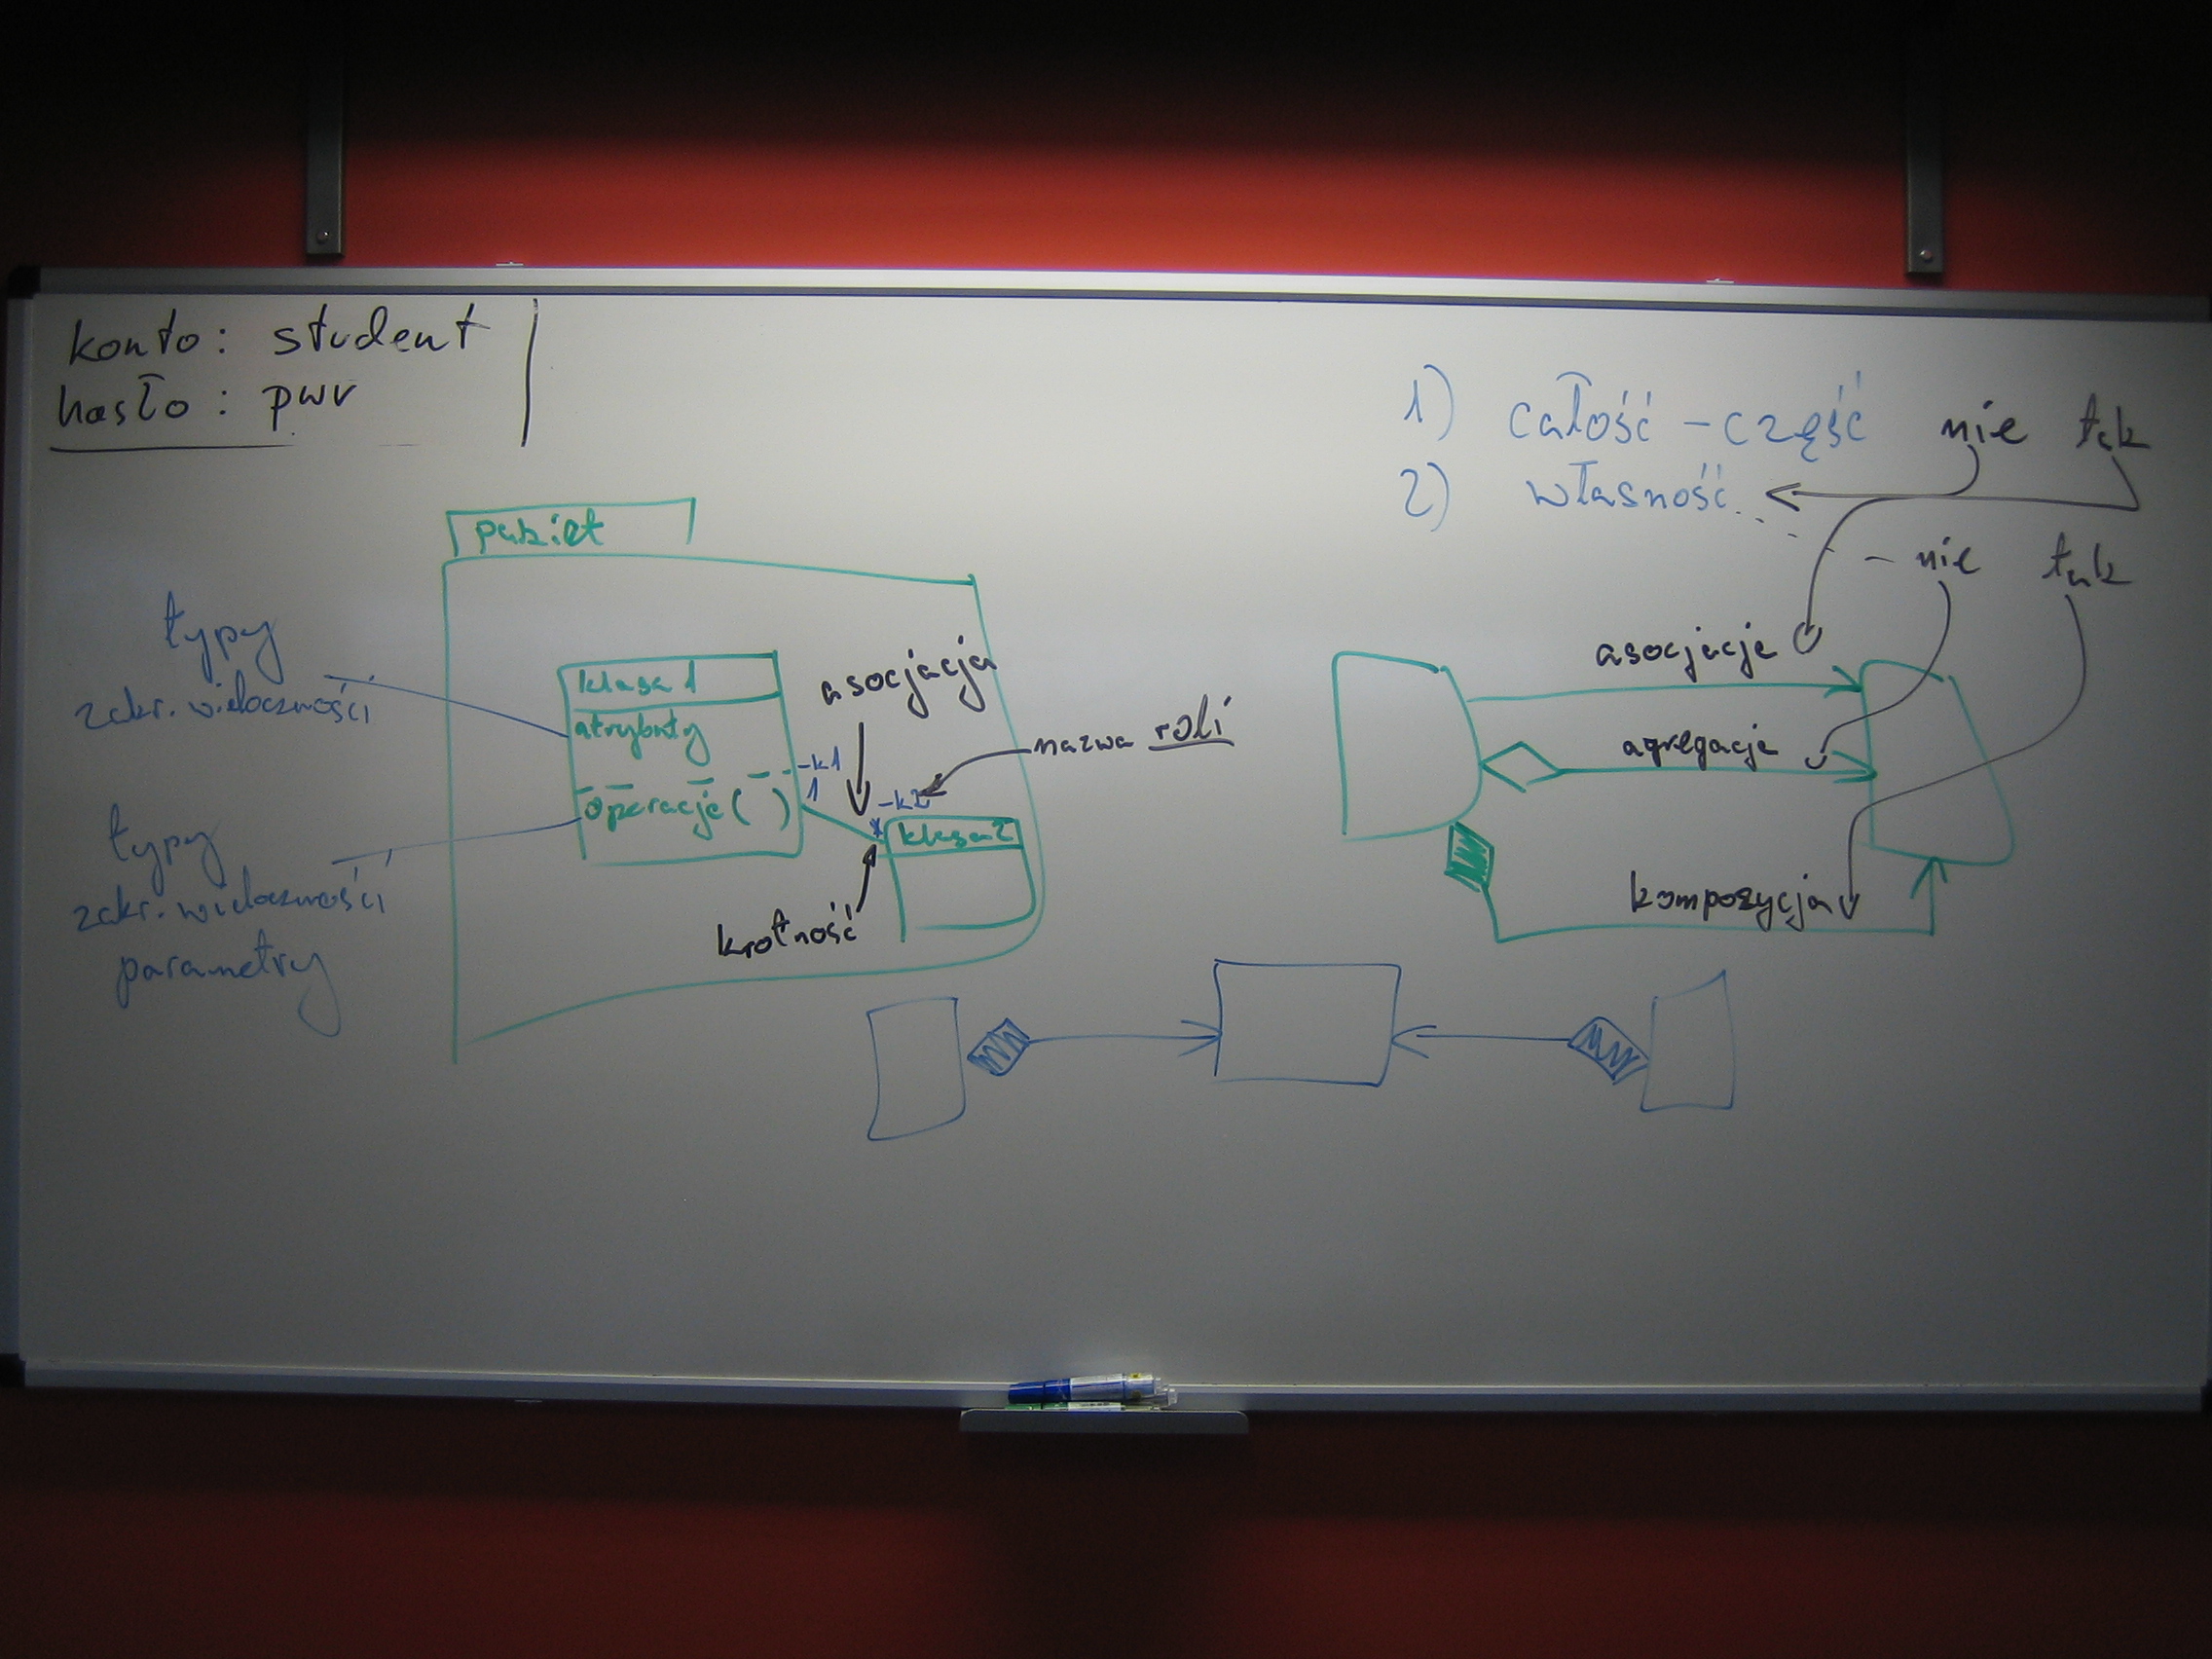 konto: student
hasło: pwr
1) całość - część nie tak
2) własność
- nie tak
pakiet
typy
zakr. widoczności
klasa 1
atrybuty
operacje( )
typy
zakr. widoczności
parametry
asocjacja
-k1
1
-k2
*
nazwa roli
klasa2
krotność
asocjacja
agregacja
kompozycja